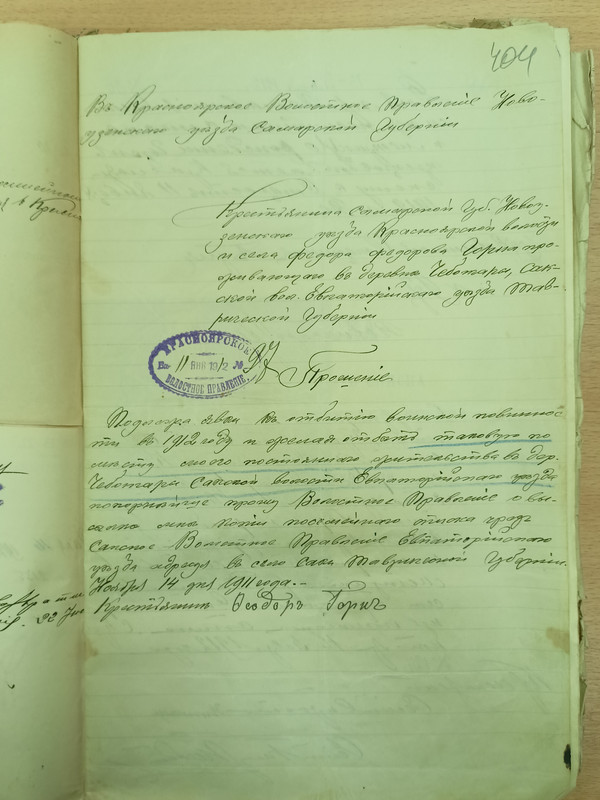 404
Въ Красноярское Волостное Правленіе Ново-
узенскаго уѣзда Самарской Губерніи
Крестьянина Самарской Губ. Новоу-
зенскаго уѣзда Красноярской волости
и села Федора Федорова Горна про-
живающаго въ деревнѣ Чеботары, Сак-
ской вол. Евпаторійскаго уѣзда Тав-
рической Губерніи
КРАСНОЯРСКОЕ
Вх. 11 ЯНВ 1912 №
ВОЛОСТНОЕ ПРАВЛЕНІЕ.
Прошеніе
Подлежа явки къ отбытію воинской повиннос-
ти въ 1912 году и желая отбыть таковую по
мѣсту моего постояннаго жительства въ дер.
Чеботары Сакской волости Евпаторійскаго уѣзда
прошу Волостное Правленіе о вы-
копіи посемейнаго списка чрезъ
Сакское Волостное Правленіе Евпаторійскаго
уѣзда адресъ въ село Саки Таврической Губерніи.
Ноября 14 дня 1911 года.-
Крестьянинъ Ѳеодоръ Горнъ